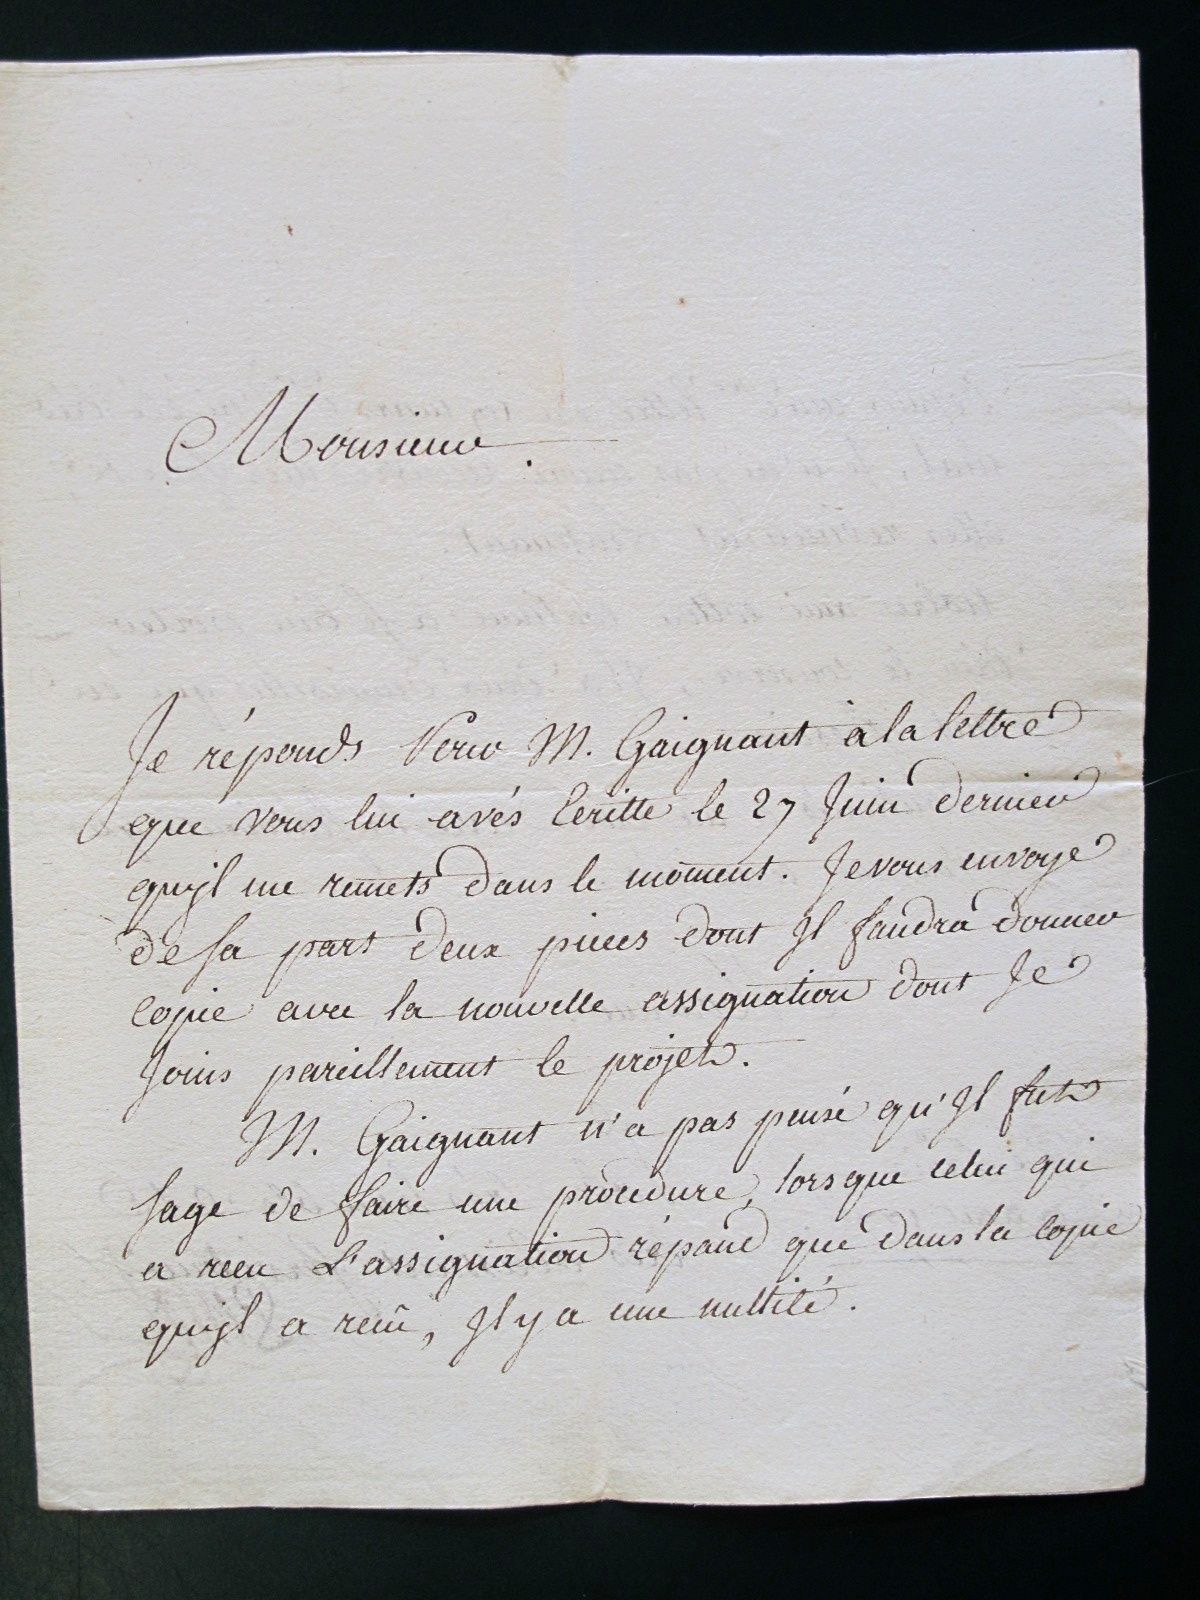 Monsieur
Je réponds Pour M. Gaignant a la lettre
que vous lui avés Ecritte le 27 Juin dernier
qu'jl me remets dans le moment. Je vous envoye
de sa part deux pieces dont Jl faudra donner
copie avec la nouvelle assignation dont Je
Joins pareillement le projet.
M. Gaignant n'a pas pensé qu'Jl fut
sage de faire une procedure, lorsque celui qui
a recu L'assignation répand que dans la copie
qu'jl a recû, Jl y a une nullité.